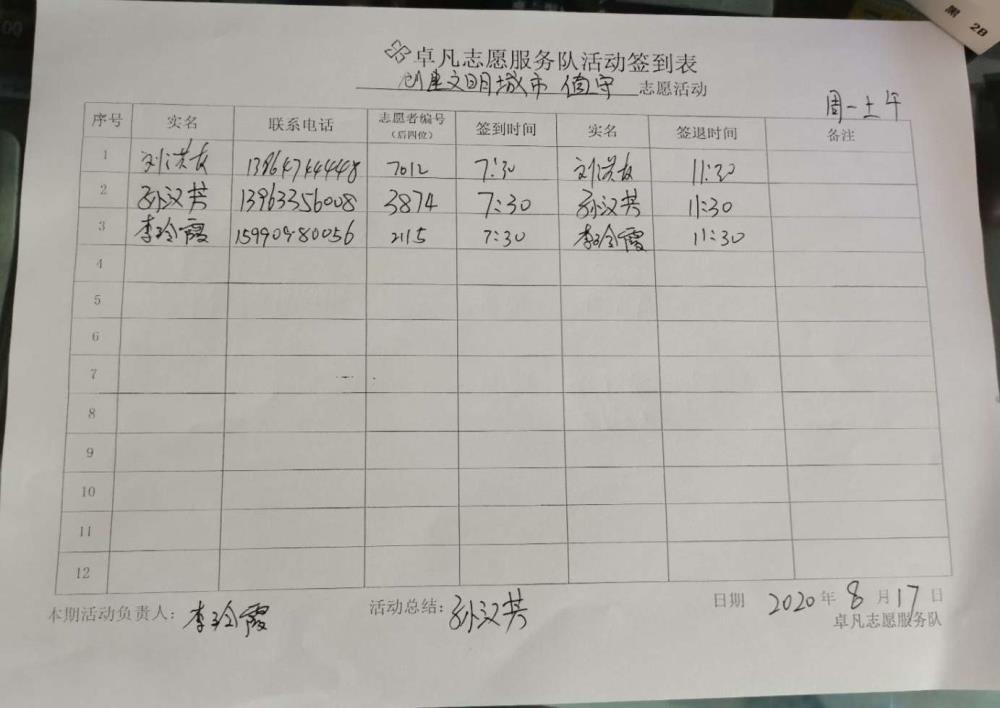 卓凡志愿服务队活动签到表
创建文明城市 值守 志愿活动
周一上午
序号 实名 联系电话 志愿者编号（后四位） 签到时间 实名 签退时间 备注
1 刘洪友 13864744448 7012 7:30 刘洪友 11:30
2 孙汉芳 13963356008 3874 7:30 孙汉芳 11:30
3 李玲霞 15990980056 2115 7:30 李玲霞 11:30
4
5
6
7
8
9
10
11
12
本期活动负责人：李玲霞 活动总结：孙汉芳 日期 2020年8月17日
卓凡志愿服务队
黑 2B